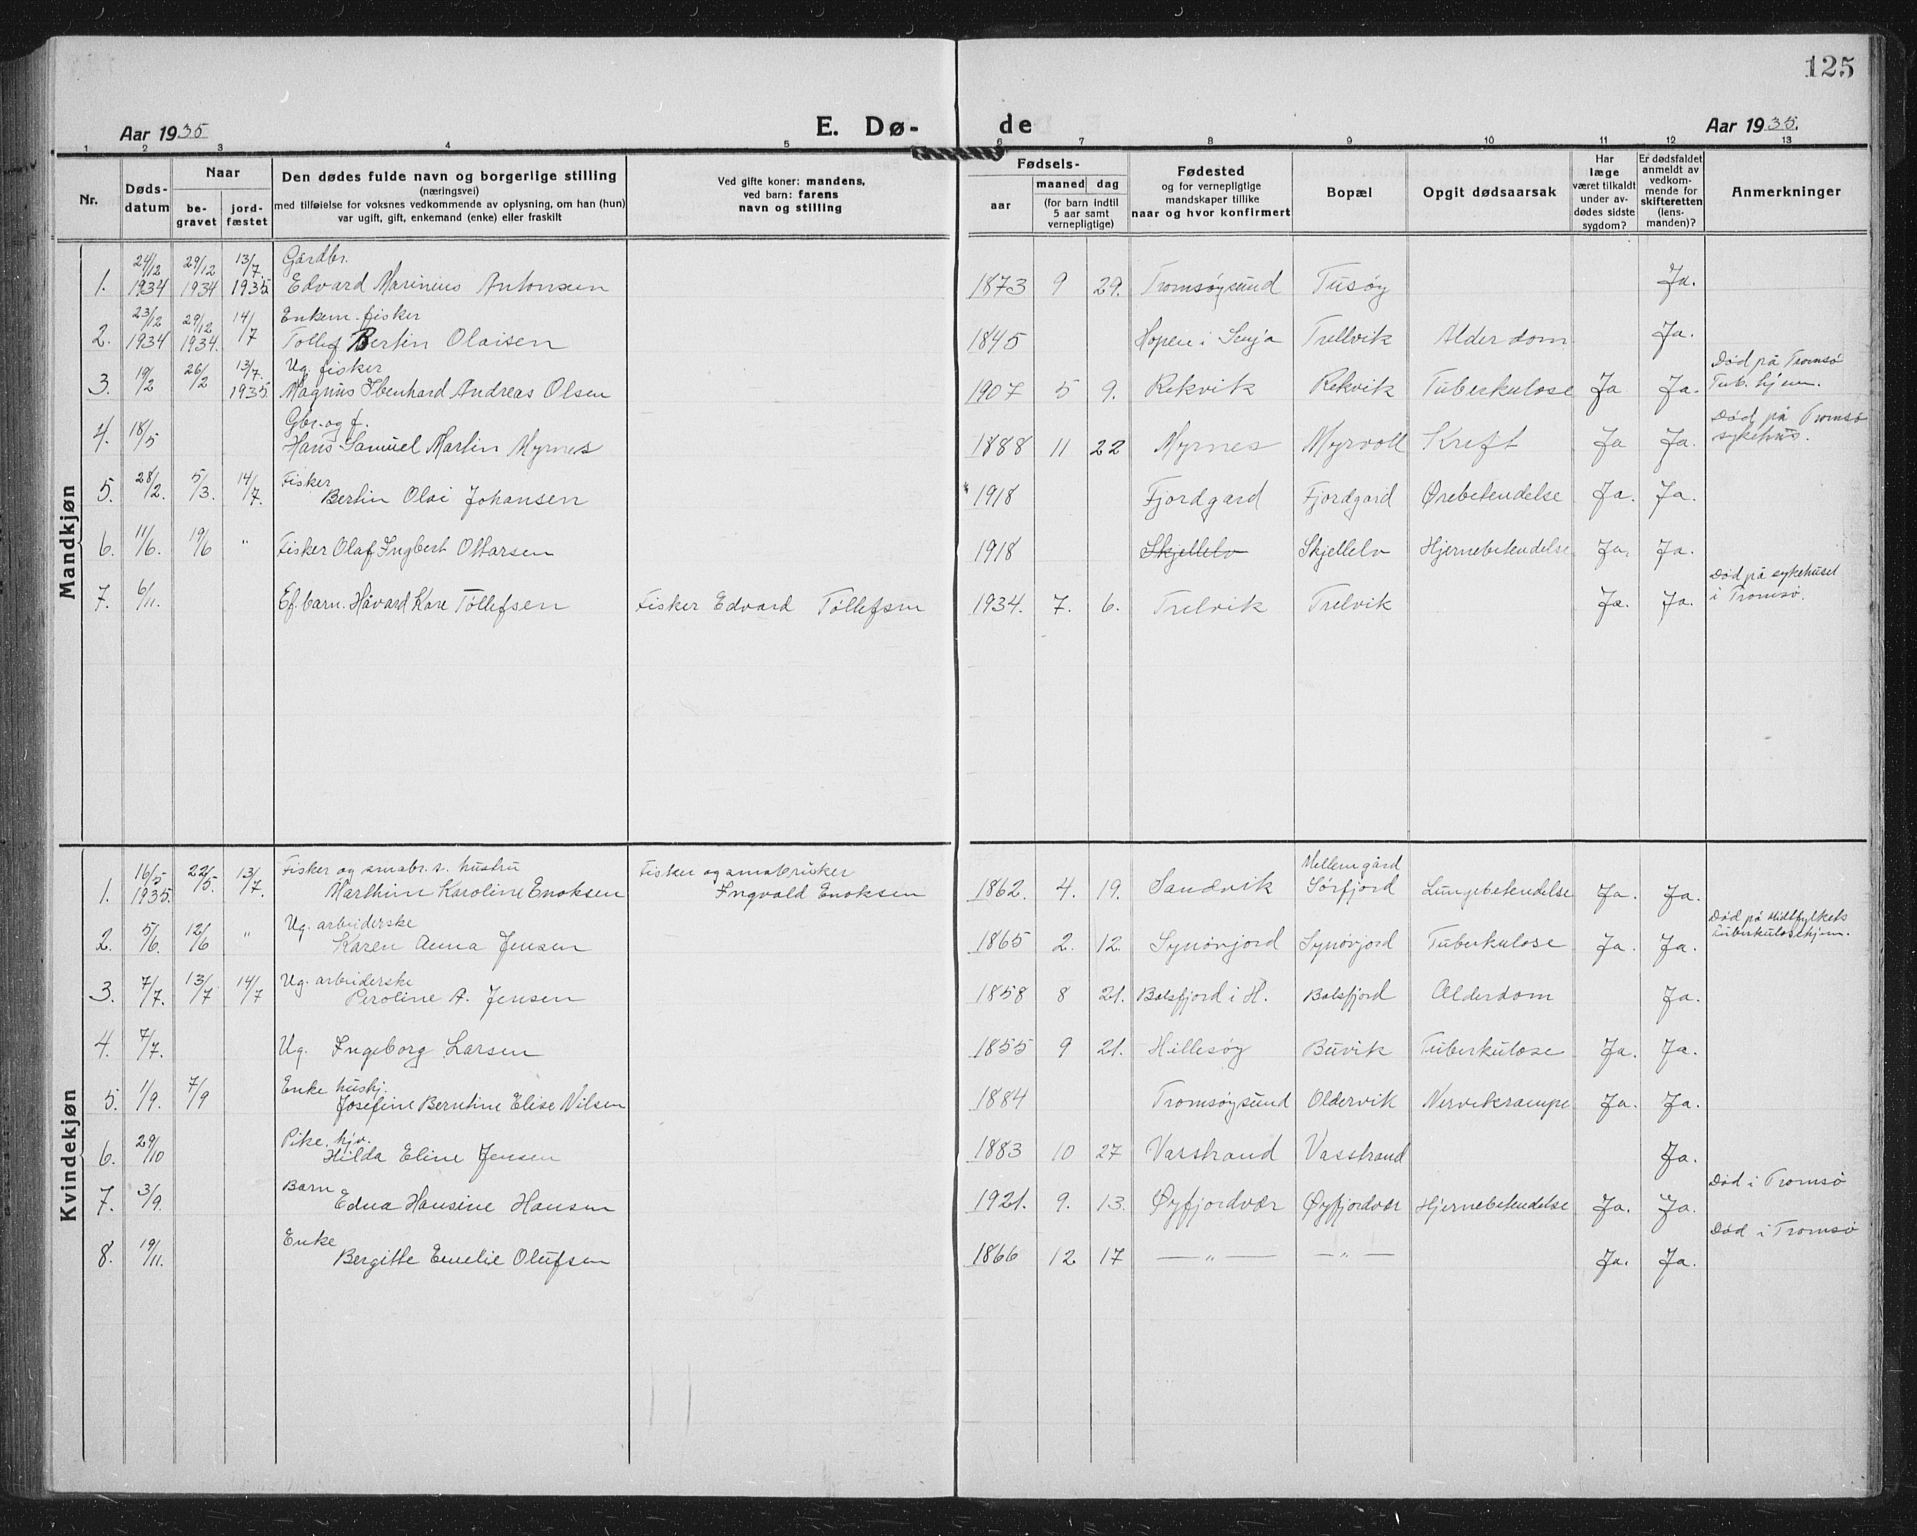 125
Aar 1935
E. Dø-
de
Aar 1935.
1 2 3 4 5 6 7 8 9 10 11 12 13
Nr.
Døds-
datum
Naar
be-
gravet
jord-
fæstet
Den dødes fulde navn og borgerlige stilling
(næringsvei)
med tilføielse for voksnes vedkommende av oplysning, om han (hun)
var ugift, gift, enkemand (enke) eller fraskilt
Ved gifte koner: mandens,
ved barn: farens
navn og stilling
Fødsels-
aar
maaned dag
(for barn indtil
5 aar samt
vernepligtige)
Fødested
og for vernepligtige
mandskaper tillike
naar og hvor konfirmert
Bopæl
Opgit dødsaarsak
Har
læge
været tilkaldt
under av-
dødes sidste
sygdom?
Er dødsfaldet
anmeldt av
vedkom-
mende for
skifteretten
(lens-
manden)?
Anmerkninger
Mandkjøn
24/12 29/12 13/7. Gårdbr.
1. 1934 1934 1935 Edvard Marinius Antonsen 1873 9 29. Tromsøysund Tusøy Ja.
23/12 29/12 14/7 Enkem. fisker
2. 1934 1934. Tollef Bertin Olaisen 1845 Hopen i Senja Trellvik Alderdom Ja.
3. 19/2 26/2 13/7. 1935. Ug. fisker
Magnus Ebenhard Andreas Olsen 1907 5 9. Rekvik Rekvik Tuberkulose Ja Ja. Død på Tromsø
Tub. hjem.
4. 18/5 Gbr. og f.
Hans Samuel Martin Myrnes 1888 11 22 Myrnes Myrvoll Kreft Ja Ja. Død på Tromsø
sykehus.
5. 28/2. 5/3. 14/7. Fisker
Bertin Olai Johansen 1918 Fjordgard Fjordgard Ørebetendelse Ja. Ja.
6. 11/6. 19/6 " Fisker Olaf Ingbert Ottarsen 1918 Skjellelv Skjellelv Hjernebetendelse Ja. Ja.
7. 6/11. Ef. barn. Håvard Kåre Tøllefsen Fisker Edvard Tøllefsen 1934. 7. 6. Trelvik Trelvik Ja. Ja. Død på sykehuset
i Tromsø.
Kvindekjøn
1. 16/5 1935. 22/5. 13/7. Fisker og småbr.s. hustru Fisker og småbruker Mellemgård
Marthine Karoline Enoksen Ingvald Enoksen 1862. 4. 19. Sandvik Sørfjord Lungebetendelse Ja. Ja.
2. 5/6. 12/6 " Ug. arbeiderske
Karen Anna Jensen 1865 2. 12. Synøvjord Synøvjord Tuberkulose Ja. Ja. Død på Midtfylkets
Tuberkulosehjem.
3. 7/7. 13/7 14/7 Ug. arbeiderske
Peroline A. Jensen 1858 8 21. Balsfjord i H. Balsfjord Alderdom Ja.
4. 7/7. Ug. Ingeborg Larsen 1855 9 21. Hillesøy Buvik Tuberkulose Ja. Ja.
5. 1/9. 7/9 Enke hushj.
Josefine Berntine Elise Nilsen 1884 Tromsøysund Oldervik Nervekrampe Ja. Ja.
6. 29/10 Pike, hjv.
Hilda Eline Jensen 1883 10 27 Vasstrand Vasstrand Ja.
7. 3/9. Barn
Edna Hansine Hansen 1921. 9. 13. Øyfjordvær Øyfjordvær Hjernebetendelse Ja. Ja. Død i Tromsø
8. 19/11. Enke
Bergitte Emelie Olufsen 1866 12 17 — " — — " — Ja. Ja. Død i Tromsø